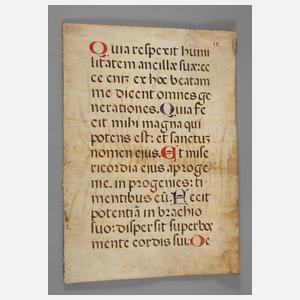 IX
Quia respexit humi
litatem ancillæ suæ: ec
ce enĩ ex hoc beatam
me dicent omnes ge
nerationes. Quia fe
cit mihi magna qui
potens est: et sanctum
nomen ejus. Et mise
ricordia ejus a proge
nie in progenies: ti
mentibus eũ. Fecit
potentiã in brachio
suo: dispersit superbos
mente cordis sui. De